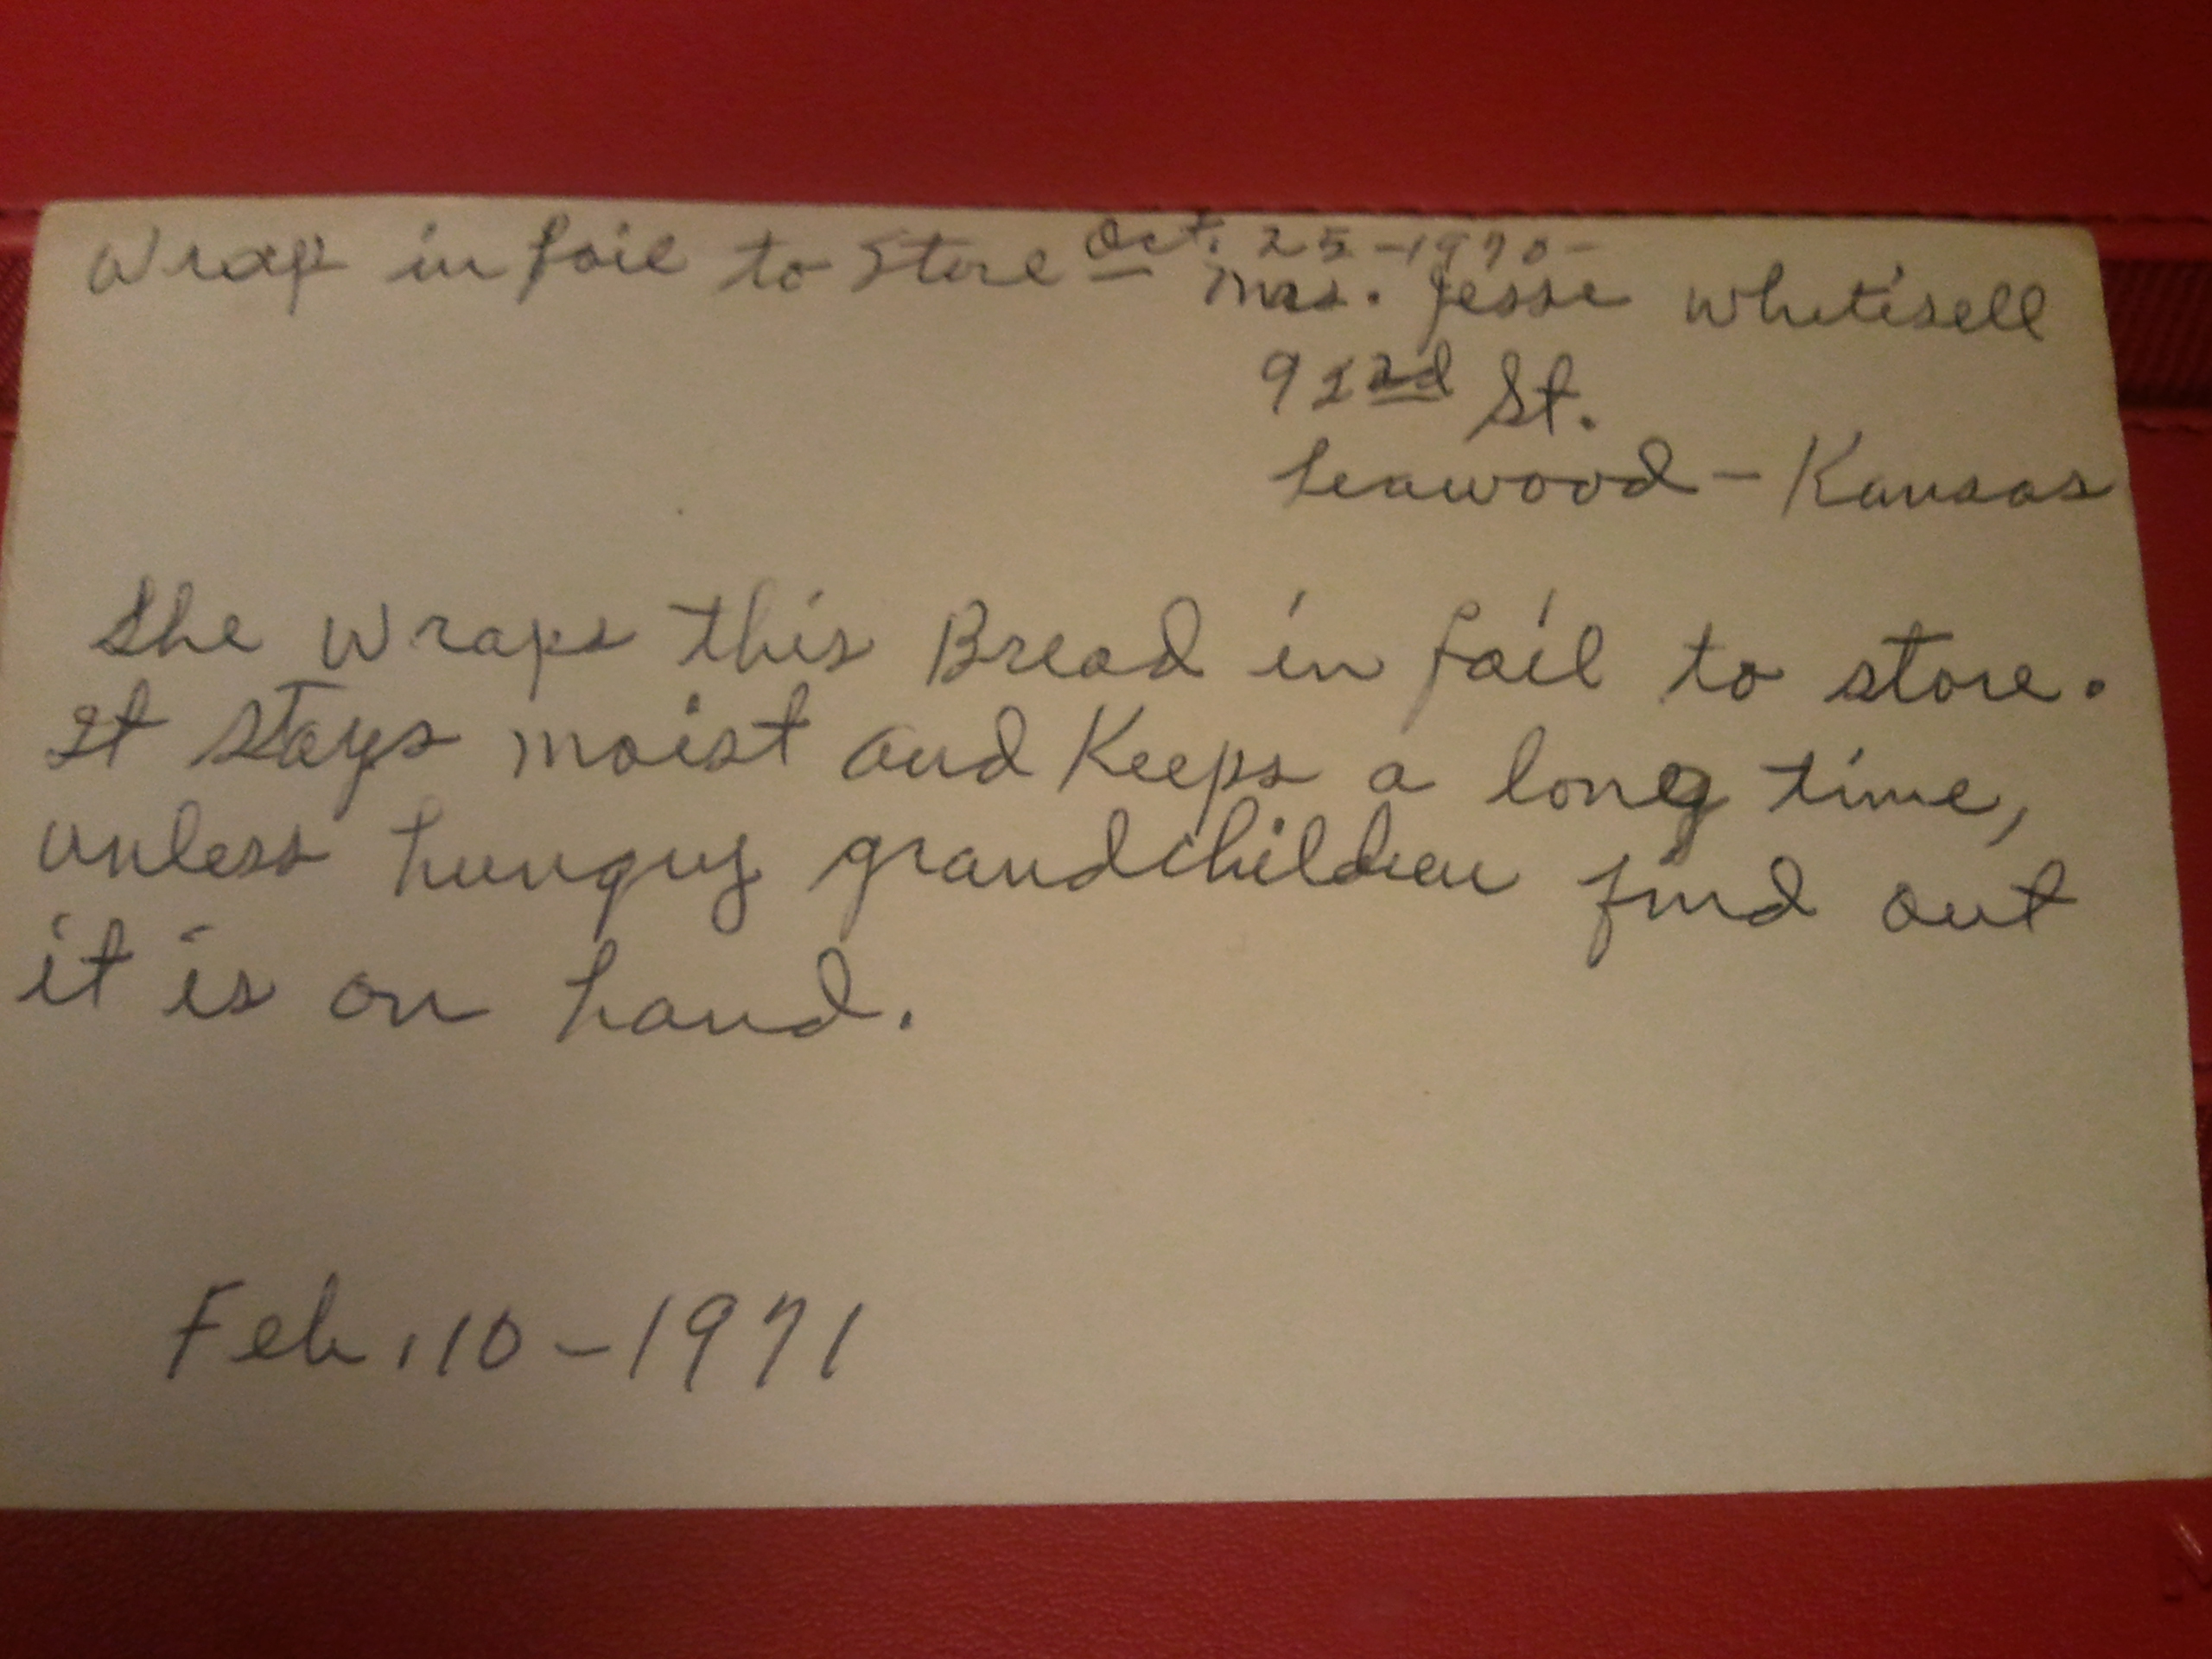 Wrap in foil to Store Oct. 25-1970-
Mrs. Jesse Whitisell
92nd St.
Leawood - Kansas
She Wraps this Bread in foil to store.
It stays moist and Keeps a long time,
unless hungry grandchildren find out
it is on hand.
Feb. 10-1971